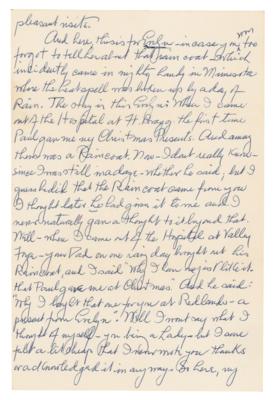 pleasant visits.
And here, this is for Evelyn - in case you
forgot to tell her about that raincoat - which
incidently came in mighty handy in Minnesota
where the heat spell was broken up by a day of
Rain. The story is this Evelyn: When I came
out of the Hospital at Ft Bragg the first time
Paul gave me my Christmas Presents. And among
them was a Raincoat. Now - I dont really know -
since I was still in a daze - whether he said, but I
guess he did that the Raincoat came from you
I thought later he had given it to me and I
never naturally gave a thought to it beyond that.
Well - when I came out of the Hospital at Valley
Forge - your Dad on one rainy day brought out his
Raincoat and I said "Why I have one just like it
that Paul gave me at Christmas." And he said:
"Why I bought that one for you at Redlands - a
present from Evelyn". Well I wont say what I
thought of myself - you bein a Lady - but I sure
felt a bit cheap that I never wrote you thanks
or acknowledged it in any way. So here, my